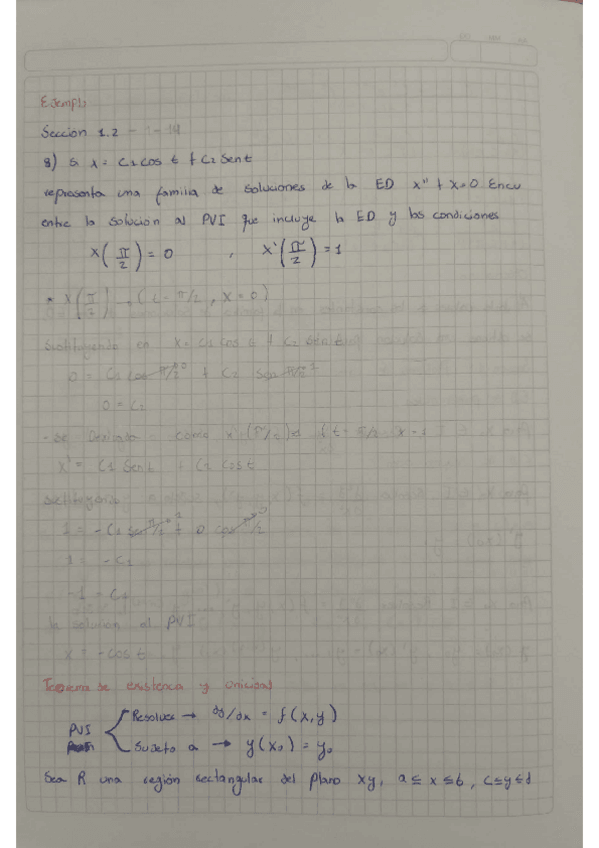 Ejemplo
Sección 1.2 - 1 - 14
8) Si x = C1 cos t + C2 Sen t
representa una familia de soluciones de la ED x'' + x = 0 Encu
entre la solución al PVI que incluye la ED y las condiciones
x(π/2) = 0 , x'(π/2) = 1
* x(π/2) , (t = π/2 , x = 0)
Sustituyendo en x = C1 cos t + C2 Sen t
0 = C1 cos π/2 0 + C2 sen π/2 1
0 = C2
- Se como x'(π/2) t = π/2 x = 1
x' = C1 Sen t + C2 Cos t
sustituyendo
1 = -C1 sen π/2 1 + 0 cos π/2 0
1 = -C1
-1 = C1
la solución al PVI
x = -cos t
Teorema de existencia y unicidad
PVI
Resolver → dy/dx = f(x,y)
Sujeto a → y(x0) = y0
Sea R una región rectangular del plano xy, a ≤ x ≤ b, c ≤ y ≤ d